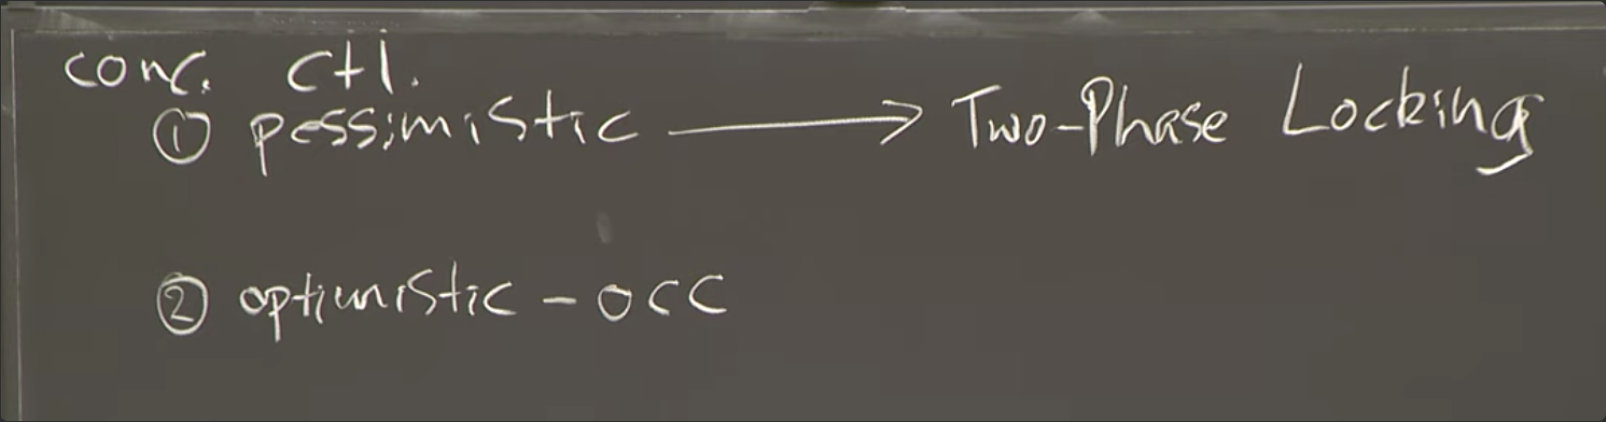 conc. ctl.
① pessimistic → Two-Phase Locking
② optimistic - OCC